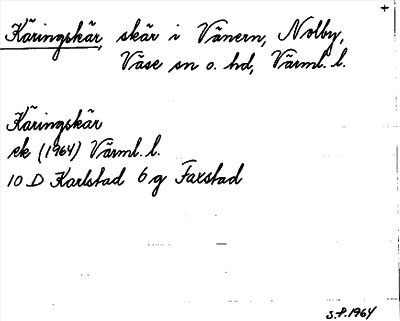 +
Käringskär, skär i Vänern, Nolby,
Väse sn o. hd, Värml. l.
Käringskär
ek (1964) Värml. l.
10 D Karlstad 6 g Faxstad
S.P. 1964